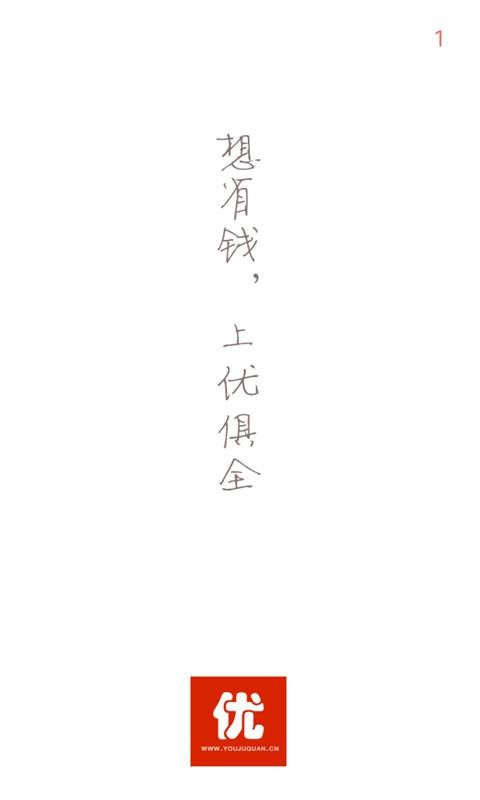 1
想省钱，上优俱全
优
WWW.YOUJUQUAN.CN